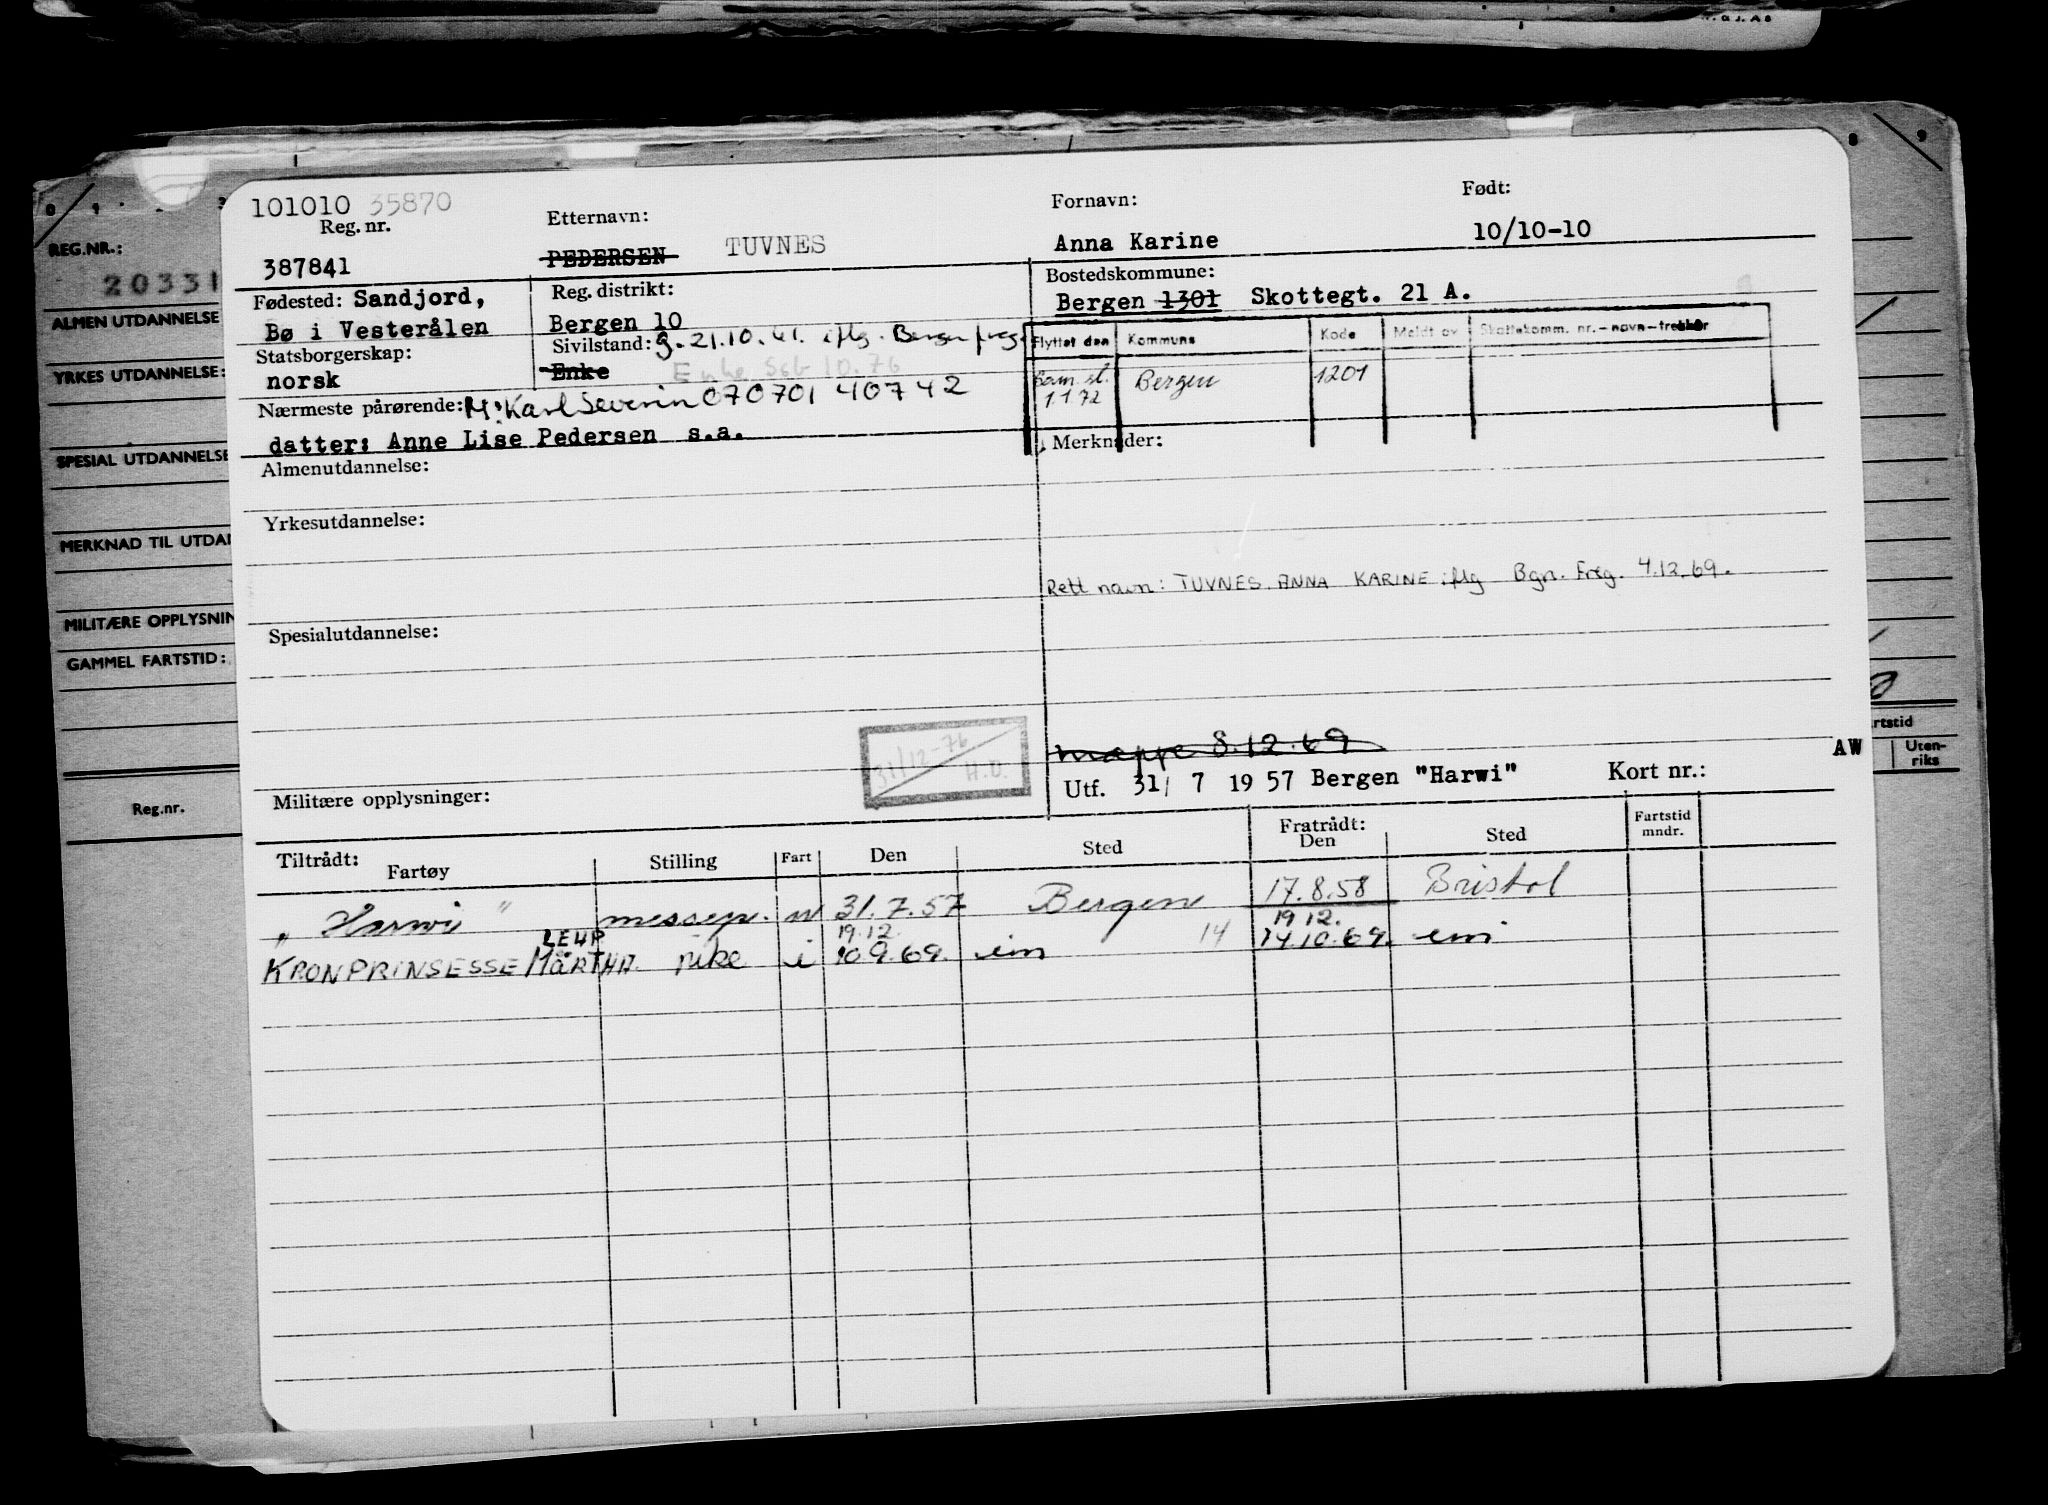 101010 35870
Reg. nr.
387841
Etternavn:
PEDERSEN TUVNES
Fornavn:
Anna Karine
Født:
10/10-10
Fødested: Sandjord,
Bø i Vesterålen
Reg. distrikt:
Bergen 10
Bostedskommune:
Bergen 1301 Skottegt. 21 A.
Statsborgerskap:
norsk
Sivilstand: g. 21.10.41. iflg. Bergen freg
Enke Enke Ssb 10.76
Flyttet den Kommune Kode Meldt av Skattekomm. nr.-navn-trekkår
1.1.72 Bergen 1201
Nærmeste pårørende: M: Karl Severin 070701 40742
datter: Anne Lise Pedersen s.a.
Merknader:
Almenutdannelse:
Yrkesutdannelse:
Rett navn: TUVNES, ANNA KARINE iflg Bgn. Freg. 4.12.69.
Spesialutdannelse:
31/12-76
H.O.
mappe 8.12.69
Militære opplysninger:
Utf. 31/ 7 1957 Bergen "Harwi" Kort nr.:
AW
Tiltrådt:
Fartøy Stilling Fart Den Sted
Fratrådt:
Den Sted
Fartstid
mndr.
"Harwi" messep. u 31.7.57 Bergen 17.8.58 Bristol
LEHP 19.12. 19.12.
KRONPRINSESSE MÄRTHA. pike i 10.9.69. im 14 14.10.69. im
REG.NR.:
20331
ALMEN UTDANNELSE
YRKES UTDANNELSE:
SPESIAL UTDANNELSE
MERKNAD TIL UTDAN
MILITÆRE OPPLYSNIN
GAMMEL FARTSTID:
Reg.nr.
rtstid
Uten-
riks
8 9